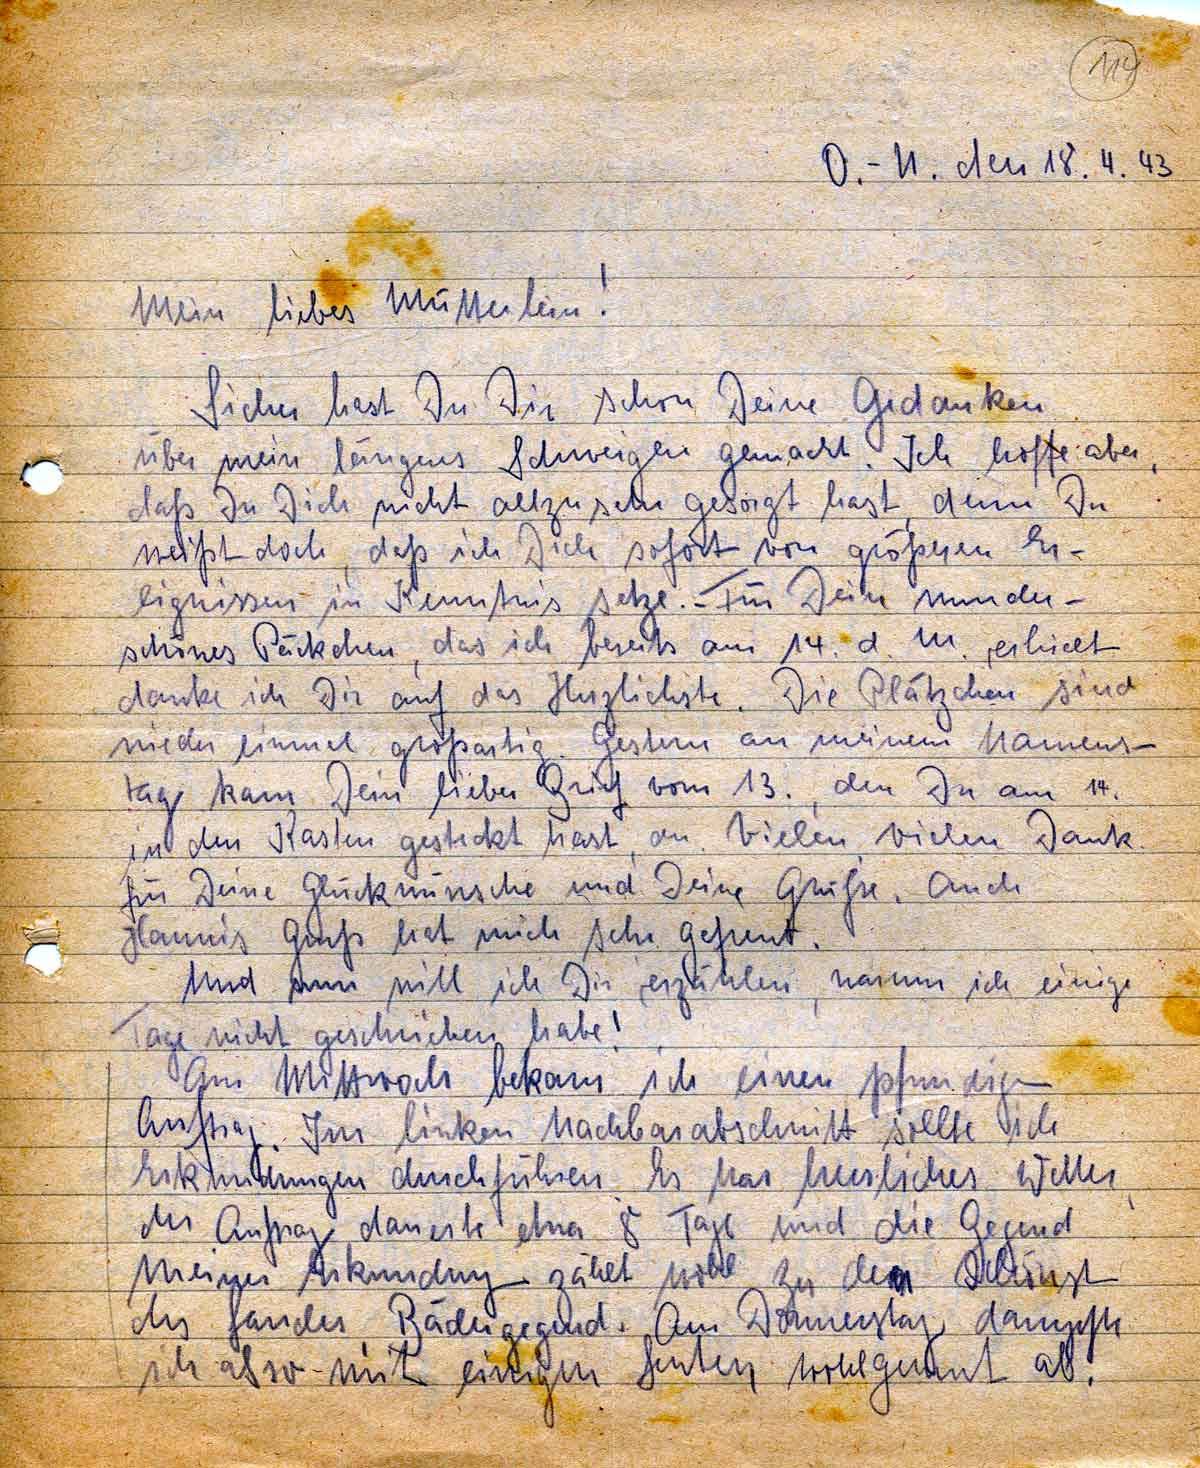 114
O.-U. den 18.4.43
Mein liebes Mütterlein!
Sicher hast Du Dir schon Deine Gedanken
über mein längeres Schweigen gemacht. Ich hoffe aber,
daß Du Dich nicht allzusehr gesorgt hast, denn Du
weißt doch, daß ich Dich sofort von größeren Er-
eignissen in Kenntnis setze. - Für Dein wunder-
schönes Päckchen, das ich bereits am 14. d. M. erhielt
danke ich Dir auf das Herzlichste. Die Plätzchen sind
wieder einmal großartig. Gestern an meinem Namens-
tage kam Dein lieber Brief vom 13., den Du am 14.
in den Kasten gesteckt hast, an. Vielen vielen Dank
für Deine Glückwünsche und Deine Grüße. Auch
Hannis Gruß hat mich sehr gefreut.
Und nun will ich Dir erzählen, warum ich einige
Tage nicht geschrieben habe!
Am Mittwoch bekam ich einen pfundigen
Auftrag. Im linken Nachbarabschnitt sollte ich
Erkundungen durchführen. Es war herrliches Wetter,
der Auftrag dauerte etwa 8 Tage und die Gegend
meiner Erkundung zählt wohl zu den schönst
des Landes, Bädergegend. Am Donnerstag dampfte
ich also mit einigen Leuten wohlgemut ab.